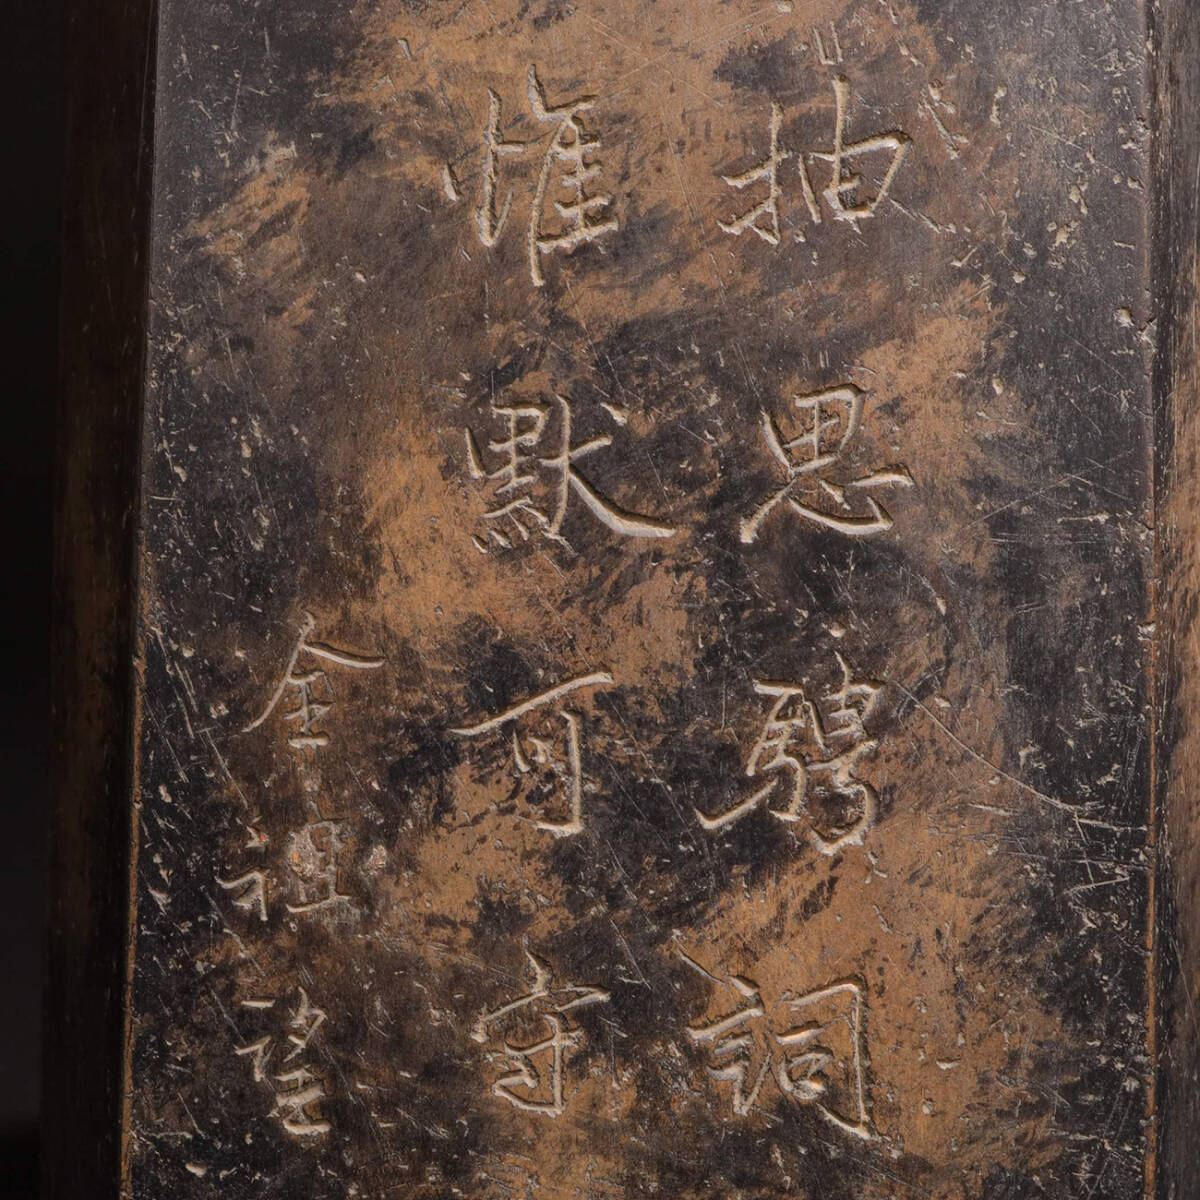 抽思騁詞
惟默可守
全祖望